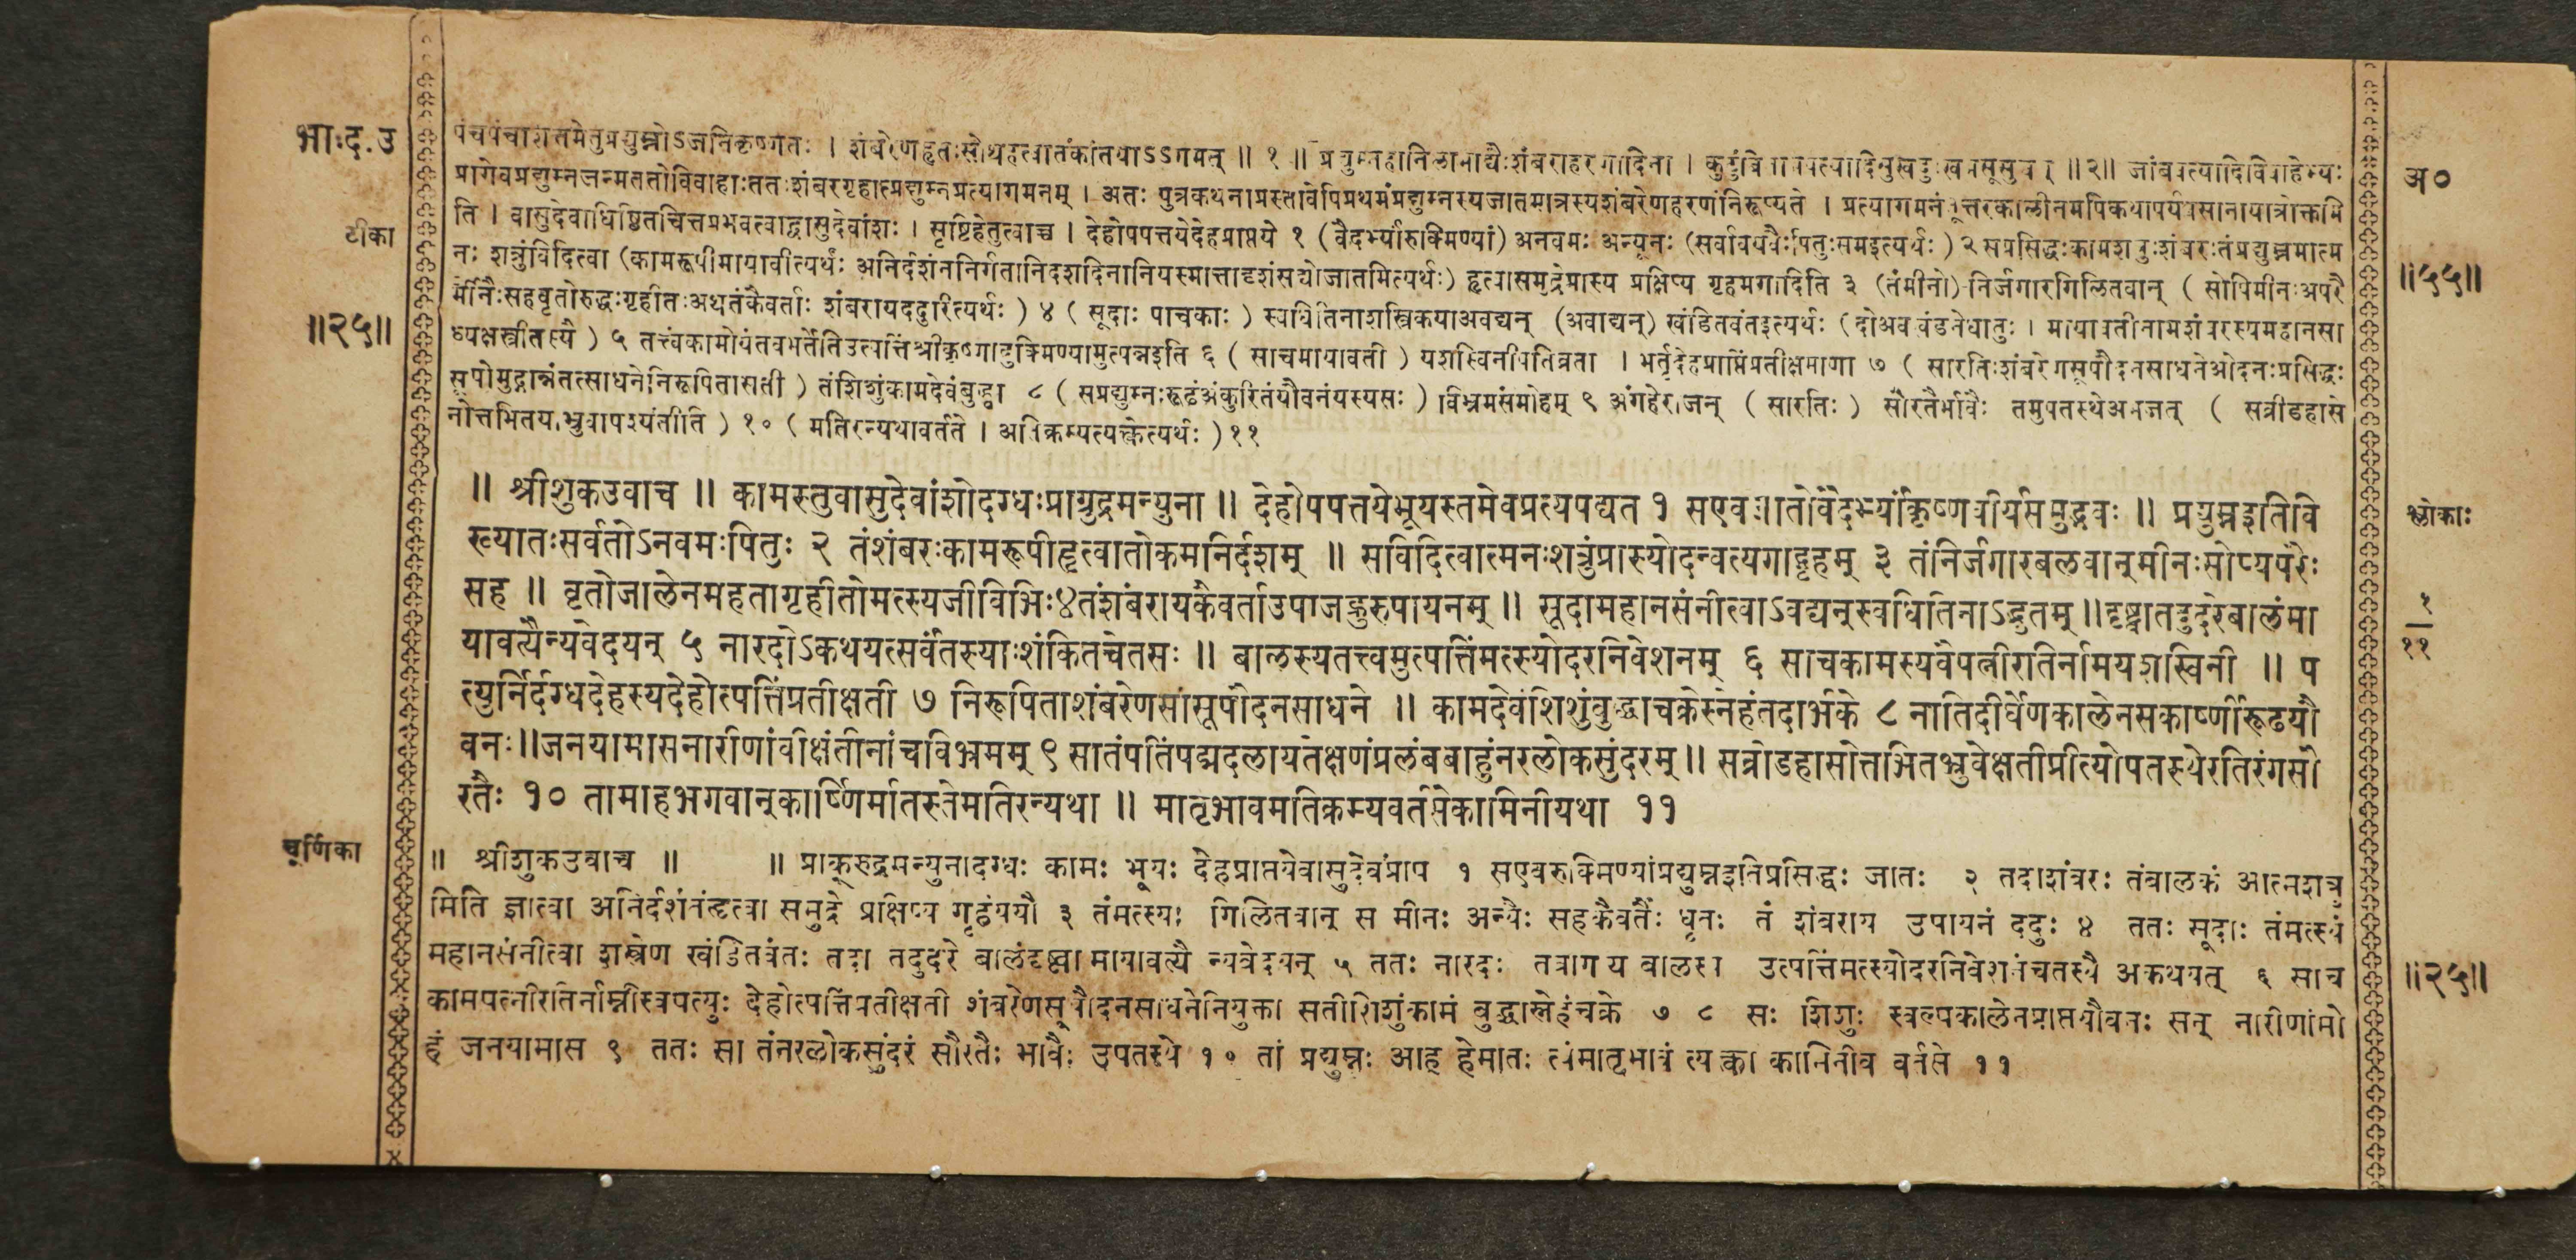 भा.द.उ
टीका
॥२५॥
पंचपंचाशत्तमेतुप्रद्युम्नोऽजनिकृष्णतः । शंबरेणहृतःसोथहत्वातंकांतयाऽऽगमत् ॥ १ ॥ शंबराहरणादिना । ॥२॥ जांबवत्यादिविवाहेभ्यः
प्रागेवप्रद्युम्नजन्मततोविवाहाःततःशंबरगृहात्प्रद्युम्नप्रत्यागमनम् । अतः पुत्रकथनाप्रस्तावेपिप्रथमंप्रद्युम्नस्यजातमात्रस्यशंबरेणहरणंनिरूप्यते । प्रत्यागमनंतूत्तरकालीनमपिकथापर्यवसानायात्रोक्तमि
ति । वासुदेवाधिष्ठितचित्तप्रभवत्वाद्वासुदेवांशः । सृष्टिहेतुत्वाच्च । देहोपपत्तयेदेहप्राप्तये १ (वैदर्भ्यांरुक्मिण्यां) अनवमः अन्यूनः (सर्वावयवैःपितुःसमइत्यर्थः) २ सप्रसिद्धःकामशत्रुःशंबरःतंप्रद्युम्नमात्म
नः शत्रुंविदित्वा (कामरूपीमायावीत्यर्थः अनिर्दशंननिर्गतानिदशदिनानियस्मात्तादृशंसद्योजातमित्यर्थः) हृत्वासमुद्रेप्रास्य प्रक्षिप्य गृहमगादिति ३ (तंमीनो) निर्जगारगिलितवान् ( सोपिमीनःअपरै
र्मीनैःसहवृतोरुद्धःगृहीतःअथतंकैवर्ताः शंबरायददुरित्यर्थः ) ४ ( सूदाः पाचकाः ) स्वधितिनाशस्त्रिकयाअवद्यन् (अवाद्यन्) खंडितवंतइत्यर्थः (दोअवखंडनेधातुः । मायावतीनामशंबरस्यमहानसा
ध्यक्षस्त्रीतस्यै ) ५ तत्त्वंकामोयंतवभर्तेतिउत्पत्तिंश्रीकृष्णाद्रुक्मिण्यामुत्पन्नइति ६ ( साचमायावती ) यशस्विनीपतिव्रता । भर्तृदेहप्राप्तिंप्रतीक्षमाणा ७ ( सारतिःशंबरेणसूपौदनसाधनेओदनःप्रसिद्धः
सूपोमुद्गान्नंतत्साधनेनिरूपितासती ) तंशिशुंकामदेवंबुद्ध्वा ८ ( सप्रद्युम्नःरूढंअंकुरितंयौवनंयस्यसः ) विभ्रमंसंमोहम् ९ अंगहेराजन् ( सारतिः ) सौरतैर्भावैः तमुपतस्थेअभजत् ( सव्रीडहासे
नोत्तभितया ) १० ( मतिरन्यथावर्तते । अतिक्रम्यत्यक्त्वेत्यर्थः ) ११
॥ श्रीशुकउवाच ॥ कामस्तुवासुदेवांशोदग्धःप्राग्रुद्रमन्युना ॥ देहोपपत्तयेभूयस्तमेवप्रत्यपद्यत १ सएवजातोवैदर्भ्यांकृष्णवीर्यसमुद्भवः ॥ प्रद्युम्नइतिवि
ख्यातःसर्वतोऽनवमःपितुः २ तंशंबरःकामरूपीहृत्वातोकमनिर्दशम् ॥ सविदित्वात्मनःशत्रुंप्रास्योदन्वत्यगाद्गृहम् ३ तंनिर्जगारबलवान्मीनःसोप्यपरैः
सह ॥ वृतोजालेनमहतागृहीतोमत्स्यजीविभिः४तंशंबरायकैवर्ताउपाजह्रुरुपायनम् ॥ सूदामहानसंनीत्वाऽवद्यन्स्वधितिनाऽद्भुतम् ॥दृष्ट्वातदुदरेबालंमा
यावत्यैन्यवेदयन् ५ नारदोऽकथयत्सर्वंतस्याःशंकितचेतसः ॥ बालस्यतत्त्वमुत्पत्तिंमत्स्योदरनिवेशनम् ६ साचकामस्यवैपत्नीरतिर्नामयशस्विनी ॥ प
त्युर्निर्दग्धदेहस्यदेहोत्पत्तिंप्रतीक्षती ७ निरूपिताशंबरेणसासूपौदनसाधने ॥ कामदेवंशिशुंबुद्ध्वाचक्रेस्नेहंतदार्भके ८ नातिदीर्घेणकालेनसकार्ष्णीरूढयौ
वनः॥जनयामासनारीणांवीक्षंतीनांचविभ्रमम् ९ सातंपतिंपद्मदलायतेक्षणंप्रलंबबाहुंनरलोकसुंदरम् ॥ सव्रीडहासोत्तभितभ्रुवेक्षतीप्रीत्योपतस्थेरतिरंगसौ
रतैः १० तामाहभगवान्कार्ष्णिर्मातस्तेमतिरन्यथा ॥ मातृभावमतिक्रम्यवर्तसेकामिनीयथा ११
चूर्णिका
॥ श्रीशुकउवाच ॥ ॥ प्राक्रुद्रमन्युनादग्धः कामः भूयः देहप्राप्तयेवासुदेवंप्राप १ सएवरुक्मिण्यांप्रद्युम्नइतिप्रसिद्धः जातः २ तदाशंबरः तंबालकं आत्मशत्रु
मिति ज्ञात्वा अनिर्दशंतंहृत्वा समुद्रे प्रक्षिप्य गृहंययौ ३ तंमत्स्यः गिलितवान् स मीनः अन्यैः सहकैवर्तैः धृतः तं शंबराय उपायनं ददुः ४ ततः सूदाः तंमत्स्यं
महानसंनीत्वा शस्त्रेण खंडितवंतः तदा तदुदरे बालंदृष्ट्वा मायावत्यै न्यवेदयन् ५ ततः नारदः तत्रागत्य बालस्य उत्पत्तिंमत्स्योदरनिवेशनंचतस्यै अकथयत् ६ साच
कामपत्नीरतिर्नाम्नीस्वपत्युः देहोत्पत्तिंप्रतीक्षती शंबरेणसूपौदनसाधनेनियुक्ता सतीशिशुंकामं बुद्ध्वास्नेहंचक्रे ७ ८ सः शिशुः स्वल्पकालेनप्राप्तयौवनः सन् नारीणांमो
हं जनयामास ९ ततः सा तंनरलोकसुंदरं सौरतैः भावैः उपतस्थे १० तां प्रद्युम्नः आह हेमातः त्वंमातृभावं त्यक्त्वा कामिनीव वर्तसे ११
अ०
॥५५॥
श्लोकाः
१
११
॥२५॥